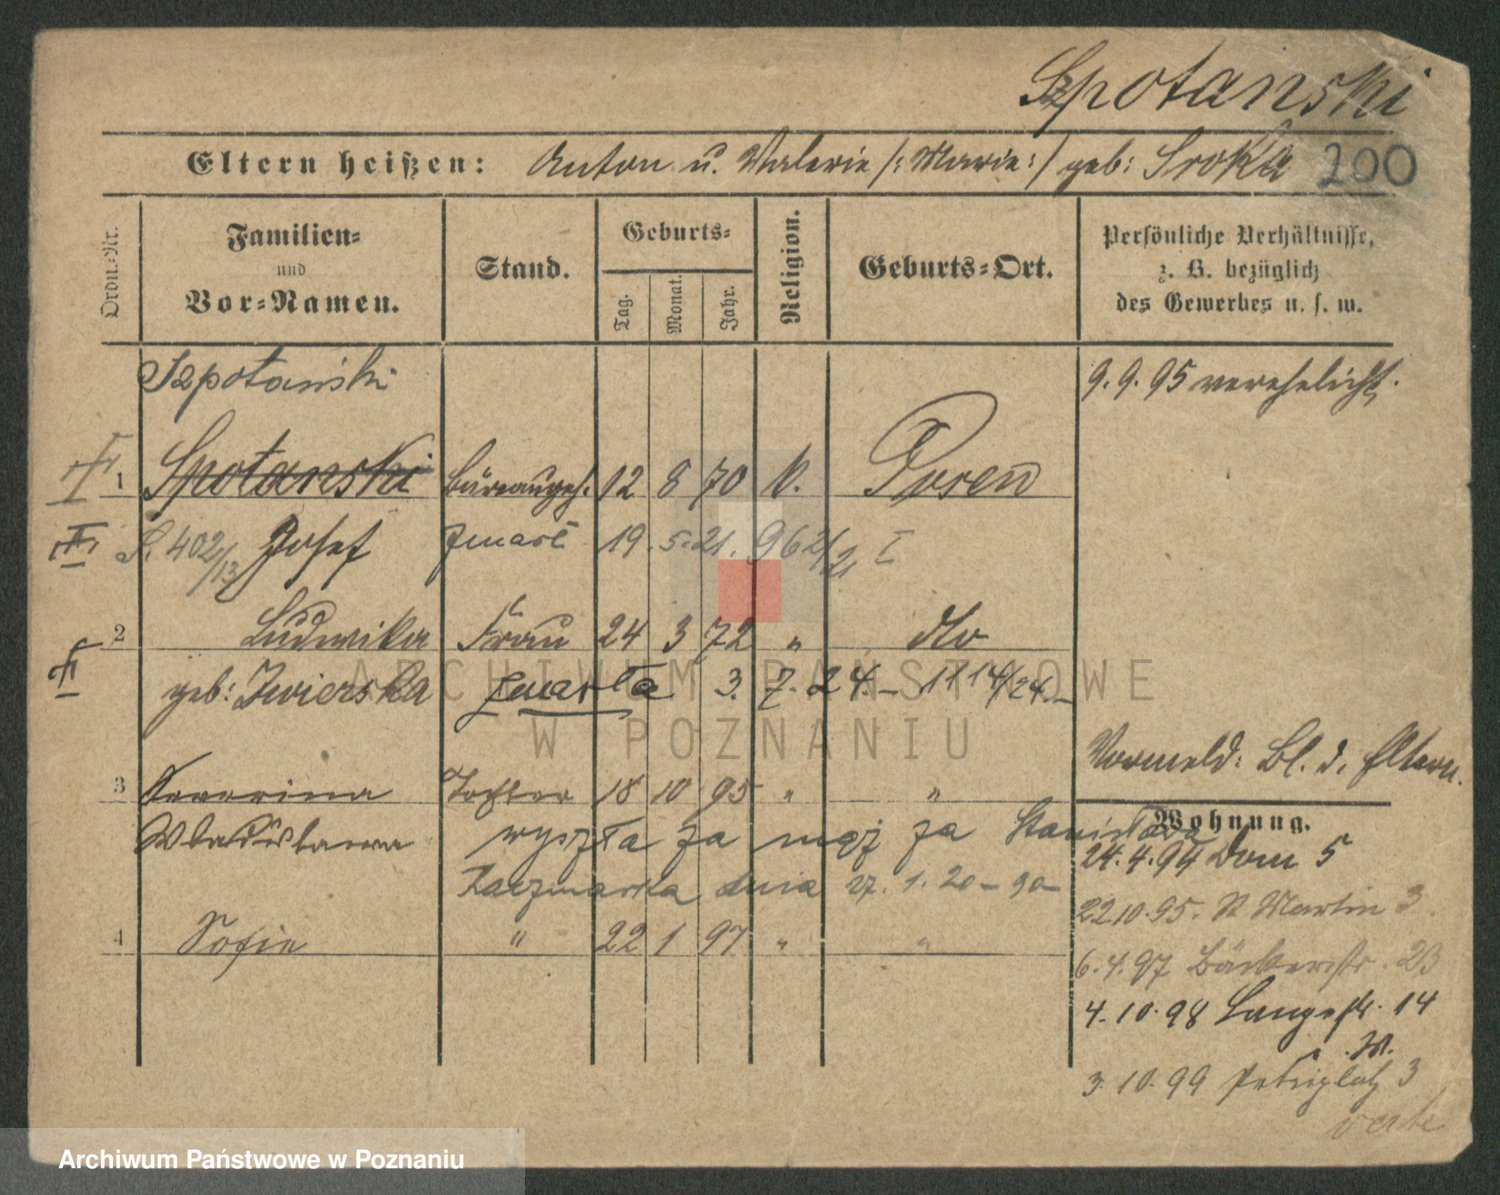 Szpotański
Eltern heißen: Anton u. Valerie /: Marie :/ geb: Sroka 200
Ordn.-Nr.
Familien-
und
Vor-Namen.
Stand.
Geburts-
Tag.
Monat.
Jahr.
Religion.
Geburts-Ort.
Persönliche Verhältnisse,
z. B. bezüglich
des Gewerbes u. s. w.
Szpotański
9. 9. 95 verehelicht.
1 Spotanski Büreaugeh. 12 8 70 k. Posen
S. 402/13 Josef zmarł 19. 5. 21. 962/21 I
2 Ludwika Frau 24 3 72 " dto
geb: Zwierska zmarła 3. 7. 24. - 1114/24. -
Vormeld: Bl. d. Eltern.
3 Severina Tochter 18 10 95 " "
Wladislawa wyszła za mąż za Stanisława
Kaczmarka dnia 27. 1. 20 -
4 Sofie " 22 1 97 " "
Wohnung.
24. 4. 94 Dom 5
22. 10. 95. St Martin 3
6. 4. 97 Bäckerstr. 23
4. 10. 98 Langestr. 14
3. 10. 99 Petriplatz 3
ARCHIWUM PAŃSTWOWE
W POZNANIU
Archiwum Państwowe w Poznaniu